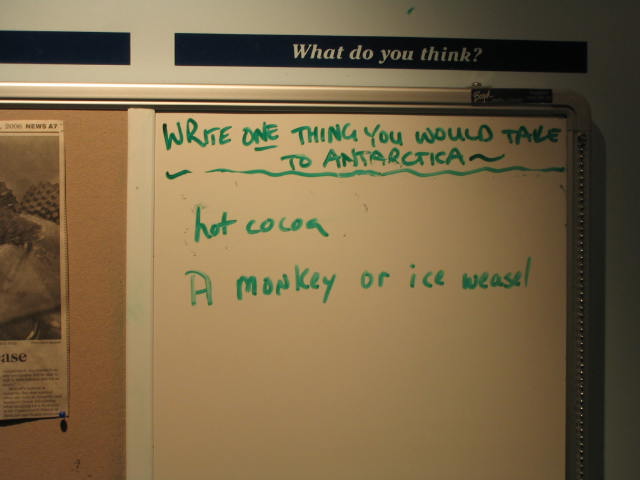 What do you think?
WRITE ONE THING YOU WOULD TAKE
TO ANTARCTICA~
hot cocoa
A monkey or ice weasel
2006 NEWS A7
ase